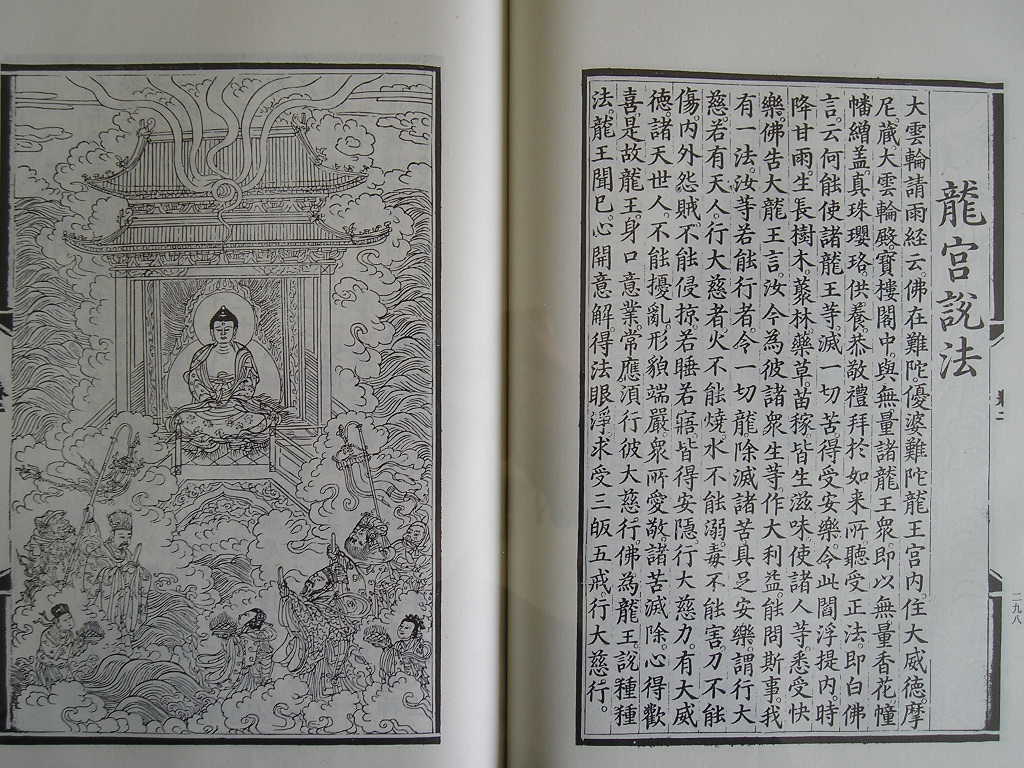 龍宮說法
大雲輪請雨經云。佛在難陀。優婆難陀龍王宮內。住大威德摩
尼藏大雲輪殿。寶樓閣中。與無量諸龍王衆。即以無量香花幢
幡繒蓋。真珠瓔珞。供養恭敬禮拜。於如来所。聽受正法。即白佛
言。云何能使諸龍王等。滅一切苦。得受安樂。令此閻浮提內。時
降甘雨。生長樹木。藂林藥草。苗稼皆生滋味。使諸人等。悉受快
樂。佛告大龍王言。汝今為彼諸衆生等。作大利益。能問斯事。我
有一法。汝等若能行者。令一切龍。除滅諸苦。具足安樂。謂行大
慈。若有天人。行大慈者。火不能燒。水不能溺。毒不能害。刀不能
傷。內外怨賊。不能侵掠。若睡若寤。皆得安隱。行大慈力。有大威
德。諸天世人。不能擾亂。形貌端嚴。衆所愛敬。諸苦滅除。心得歡
喜。是故龍王。身口意業。常應須行彼大慈行。佛為龍王。說種種
法。龍王聞已。心開意解。得法眼淨。求受三皈五戒。行大慈行。
二九八